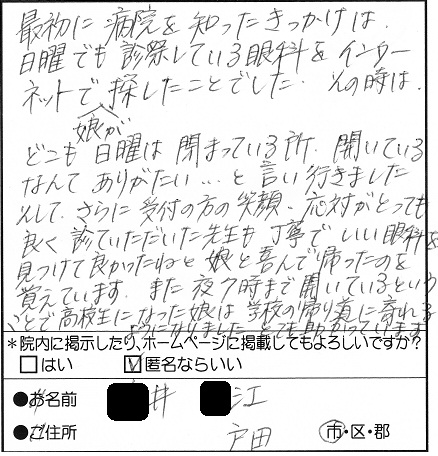 最初に 病院を 知ったきっかけは、
日曜でも 診察している眼科を インター
ネットで探したことでした. その時は.
娘が
どこも 日曜は 閉まっている所. 開いている
なんて ありがたい…と 言い 行きました
そして. さらに 受付の方の 笑顔. 応対がとっても
良く 診ていただいた先生も 丁寧で いい 眼科を
見つけて 良かったねと 娘と 喜んで 帰ったのを
覚えています. また 夜7時まで 開いているという
ことで 高校生になった娘は 学校の 帰り道に 寄れる
ようになりました とても助かっています
*院内に掲示したり、ホームページに掲載してもよろしいですか?
□はい ☑匿名ならいい
●お名前 井 江
●ご住所 戸田 市・区・郡